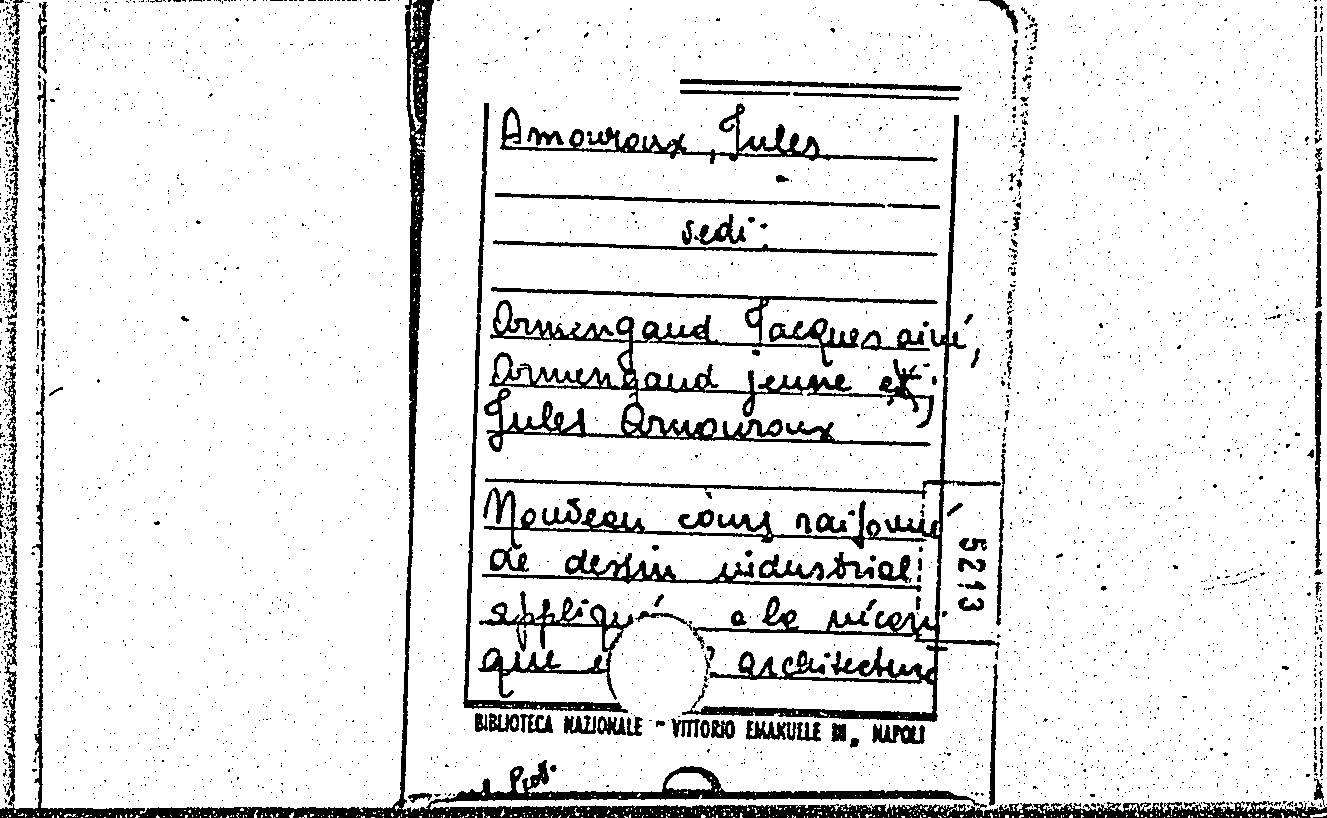 Amouroux, Jules
sedi:
Armengaud Jacques ainé,
Armengaud jeune et,
Jules Amouroux
Nouveau cours raisonné
de dessin industrial
appliqué a la mécani
que architecture
5213
BIBLIOTECA NAZIONALE - VITTORIO EMANUELE III, NAPOLI